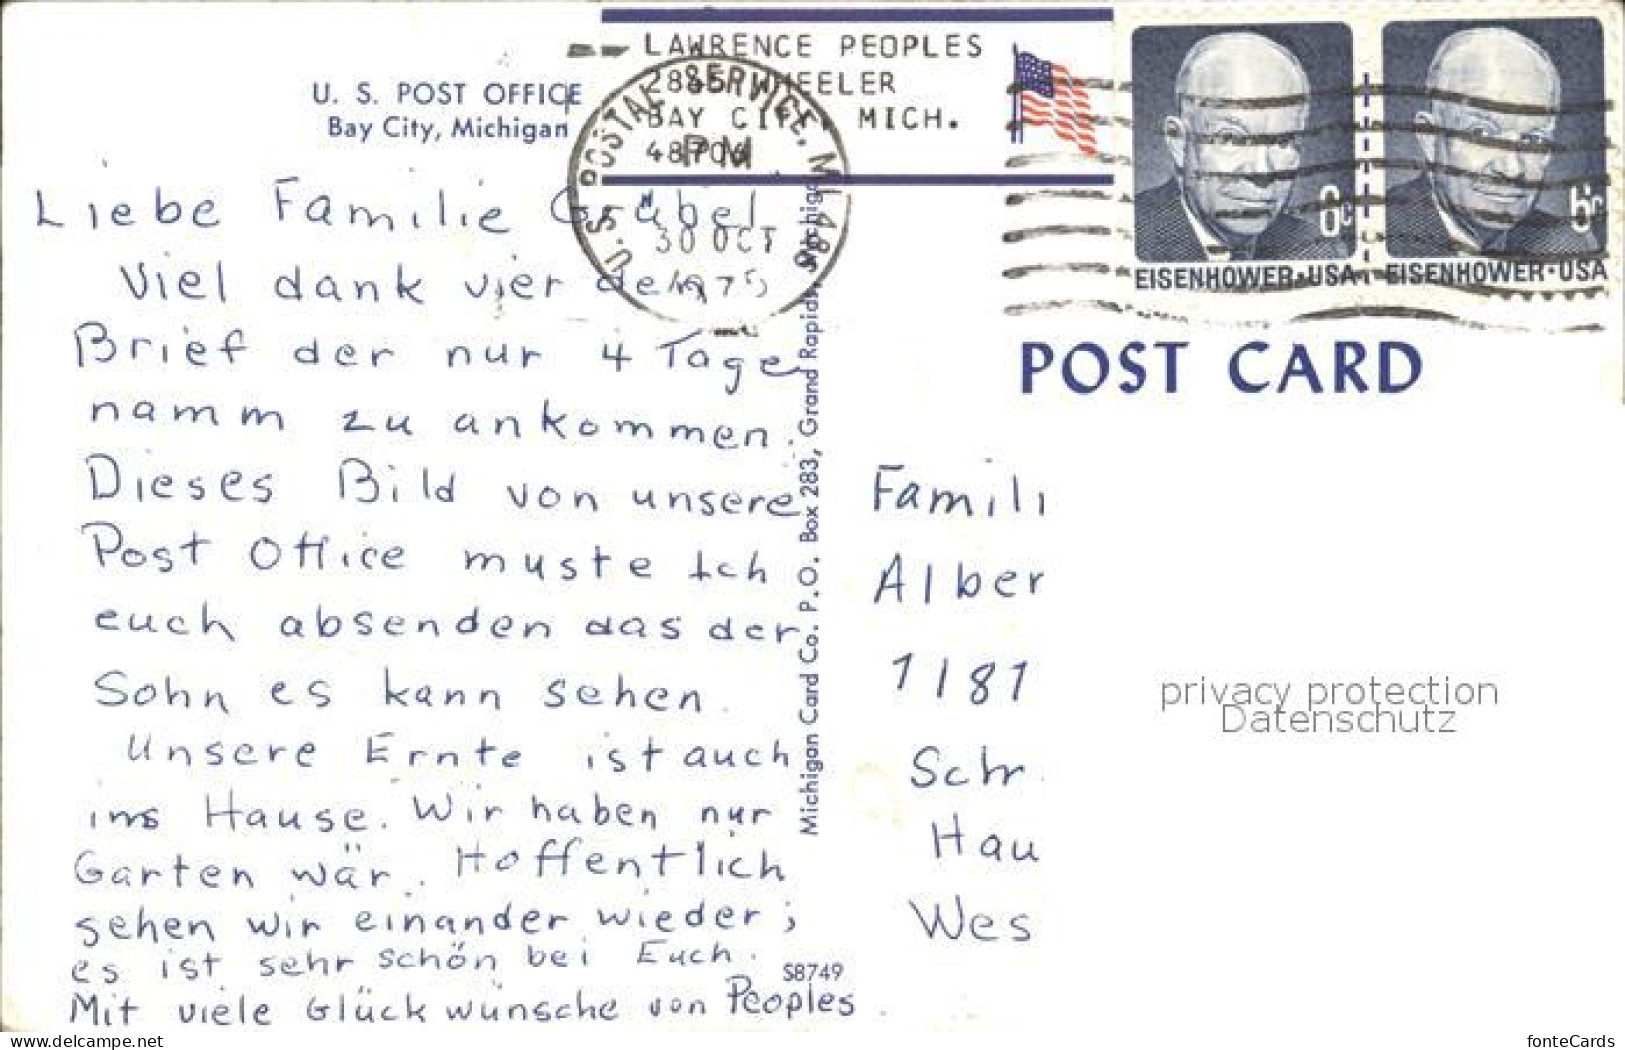 LAWRENCE PEOPLES
WHEELER
BAY CITY MICH.
U.S. POSTAL SERVICE, MI 486
PM
30 OCT
1975
U. S. POST OFFICE
Bay City, Michigan
6c
EISENHOWER·USA
6c
EISENHOWER·USA
POST CARD
Liebe Familie Gräbel
Viel dank vier den
Brief der nur 4 Tage
namm zu ankommen.
Dieses Bild von unsere
Post Office muste Ich
euch absenden das der
Sohn es kann sehen.
Unsere Ernte ist auch
ins Hause. Wir haben nur
Garten wär. Hoffentlich
sehen wir einander wieder;
es ist sehr schön bei Euch.
Mit viele Glückwünsche von Peoples.
Michigan Card Co. P.O. Box 283, Grand Rapids, Michigan
S8749
Famili
Alber
7181
Schr
Hau
Wes
privacy protection
Datenschutz
delcampe.net
fonteCards